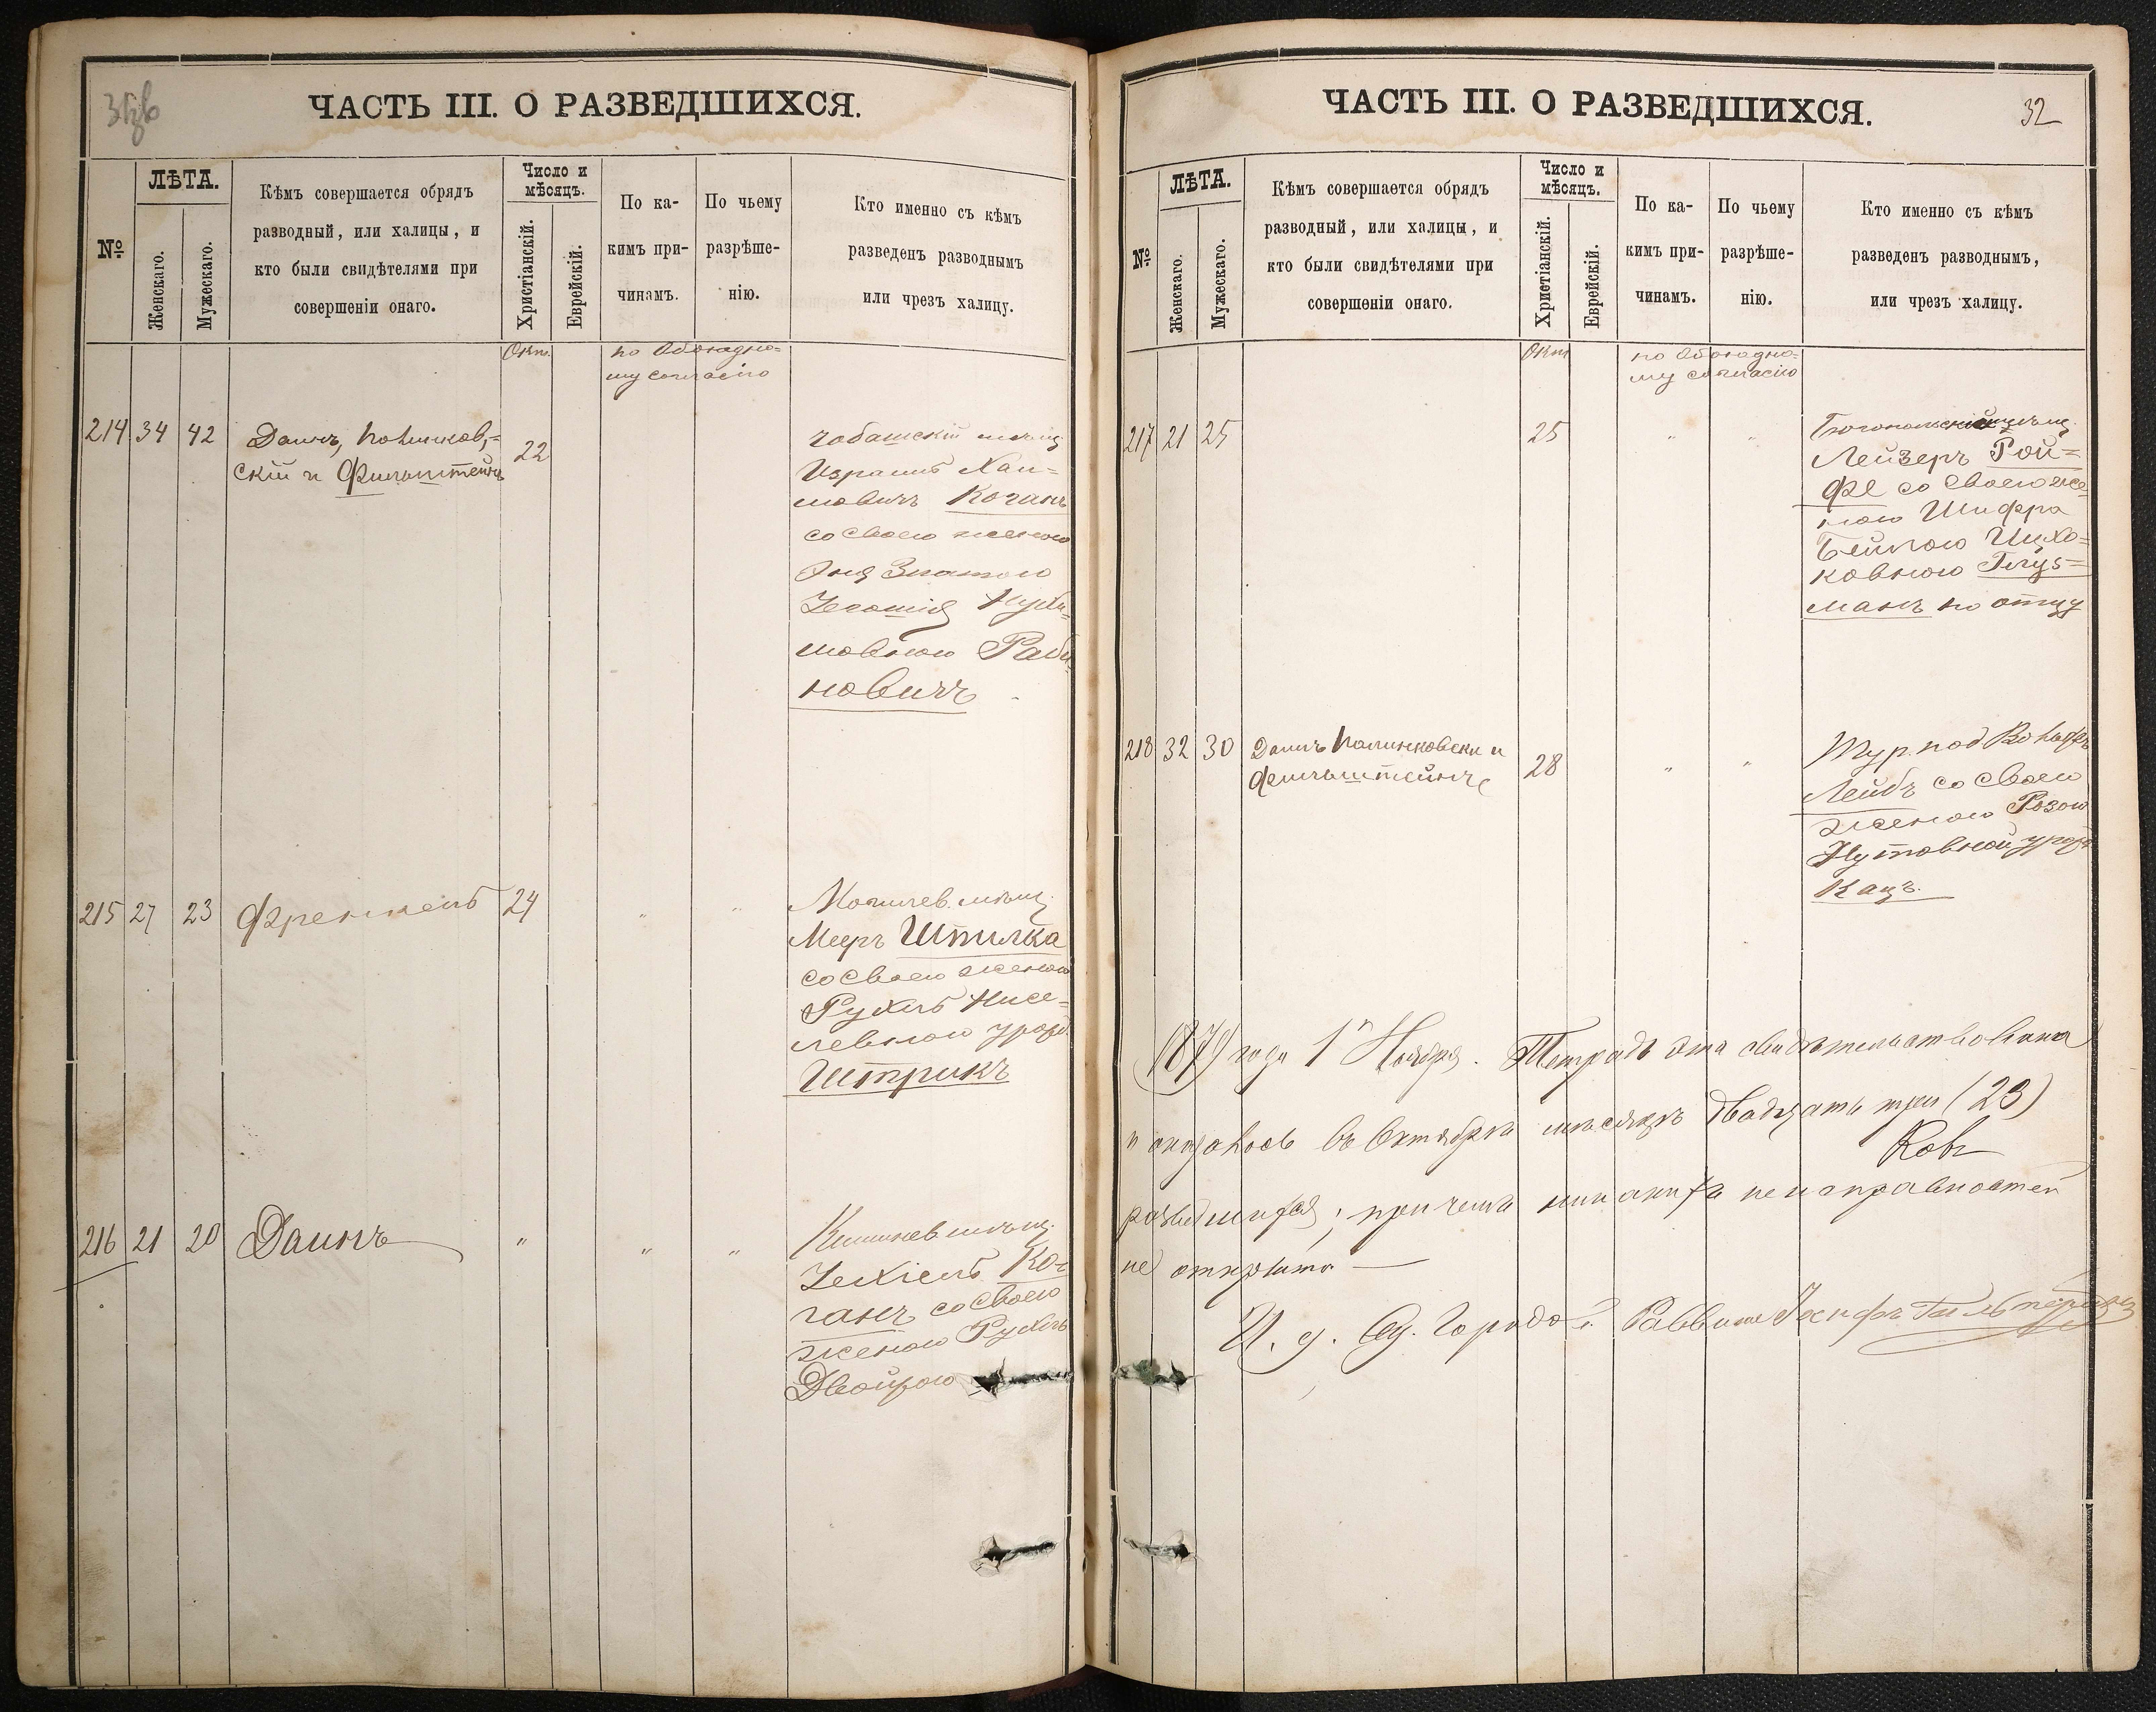 ЧАСТЬ III. О РАЗВЕДШИХСЯ.
№
ЛѢТА.
Женскаго.
Мужескаго.
Кѣмъ совершается обрядъ
разводный, или халицы, и
кто были свидѣтелями при
совершеніи онаго.
Число и
мѣсяцъ.
Христіанскій.
Еврейскій.
По ка-
кимъ при-
чинамъ.
По чьему
разрѣше-
нію.
Кто именно съ кѣмъ
разведенъ разводнымъ
или чрезъ халицу.
Окт.
по Обоюдно-
му согласію
214 34 42 Даинъ, Полинков-
скій и Фильштейнъ
22
мѣщ.
Израиль Хаи-
мовичъ Коганъ
со Своею женою
Златою
Раби-
новичъ
215 27 23 Френкель 24 " "
Могилев. мѣщ.
Мееръ Шпилка
со Своею женою
Рухль Нисе-
левною урожд.
Штрикъ
216 21 20 Даинъ " " "
Кишинев мѣщ.
Іехіель Ко-
ганъ со Своею
женою Рухль
Двойрою
ЧАСТЬ III. О РАЗВЕДШИХСЯ.
32
№
ЛѢТА.
Женскаго.
Мужескаго.
Кѣмъ совершается обрядъ
разводный, или халицы, и
кто были свидѣтелями при
совершеніи онаго.
Число и
мѣсяцъ.
Христіанскій.
Еврейскій.
По ка-
кимъ при-
чинамъ.
По чьему
разрѣше-
нію.
Кто именно съ кѣмъ
разведенъ разводнымъ,
или чрезъ халицу.
Окт
по Обоюдно-
му согласію
217 21 25 25 " "
Лейзеръ Рой-
фе со Своею же-
ною Шифра
Бейлою Ицко-
ковною Глуз-
манъ по отцу
218 32 30 Даинъ Полинковски и
Фильштейнъ
28 " "
Тур. под
Лейбъ со Своею
женою Розою
Нутовной урожд
Кацъ.
года 1 Ноября. Тетрадь эта свидѣтельствована
и оказалось въ Октябрѣ мѣсяцѣ двадцать три (23)
разведшихся; при чемъ никакихъ неисправностей
не открыто —
И. д. Од. Городов. Раввина Іосифъ